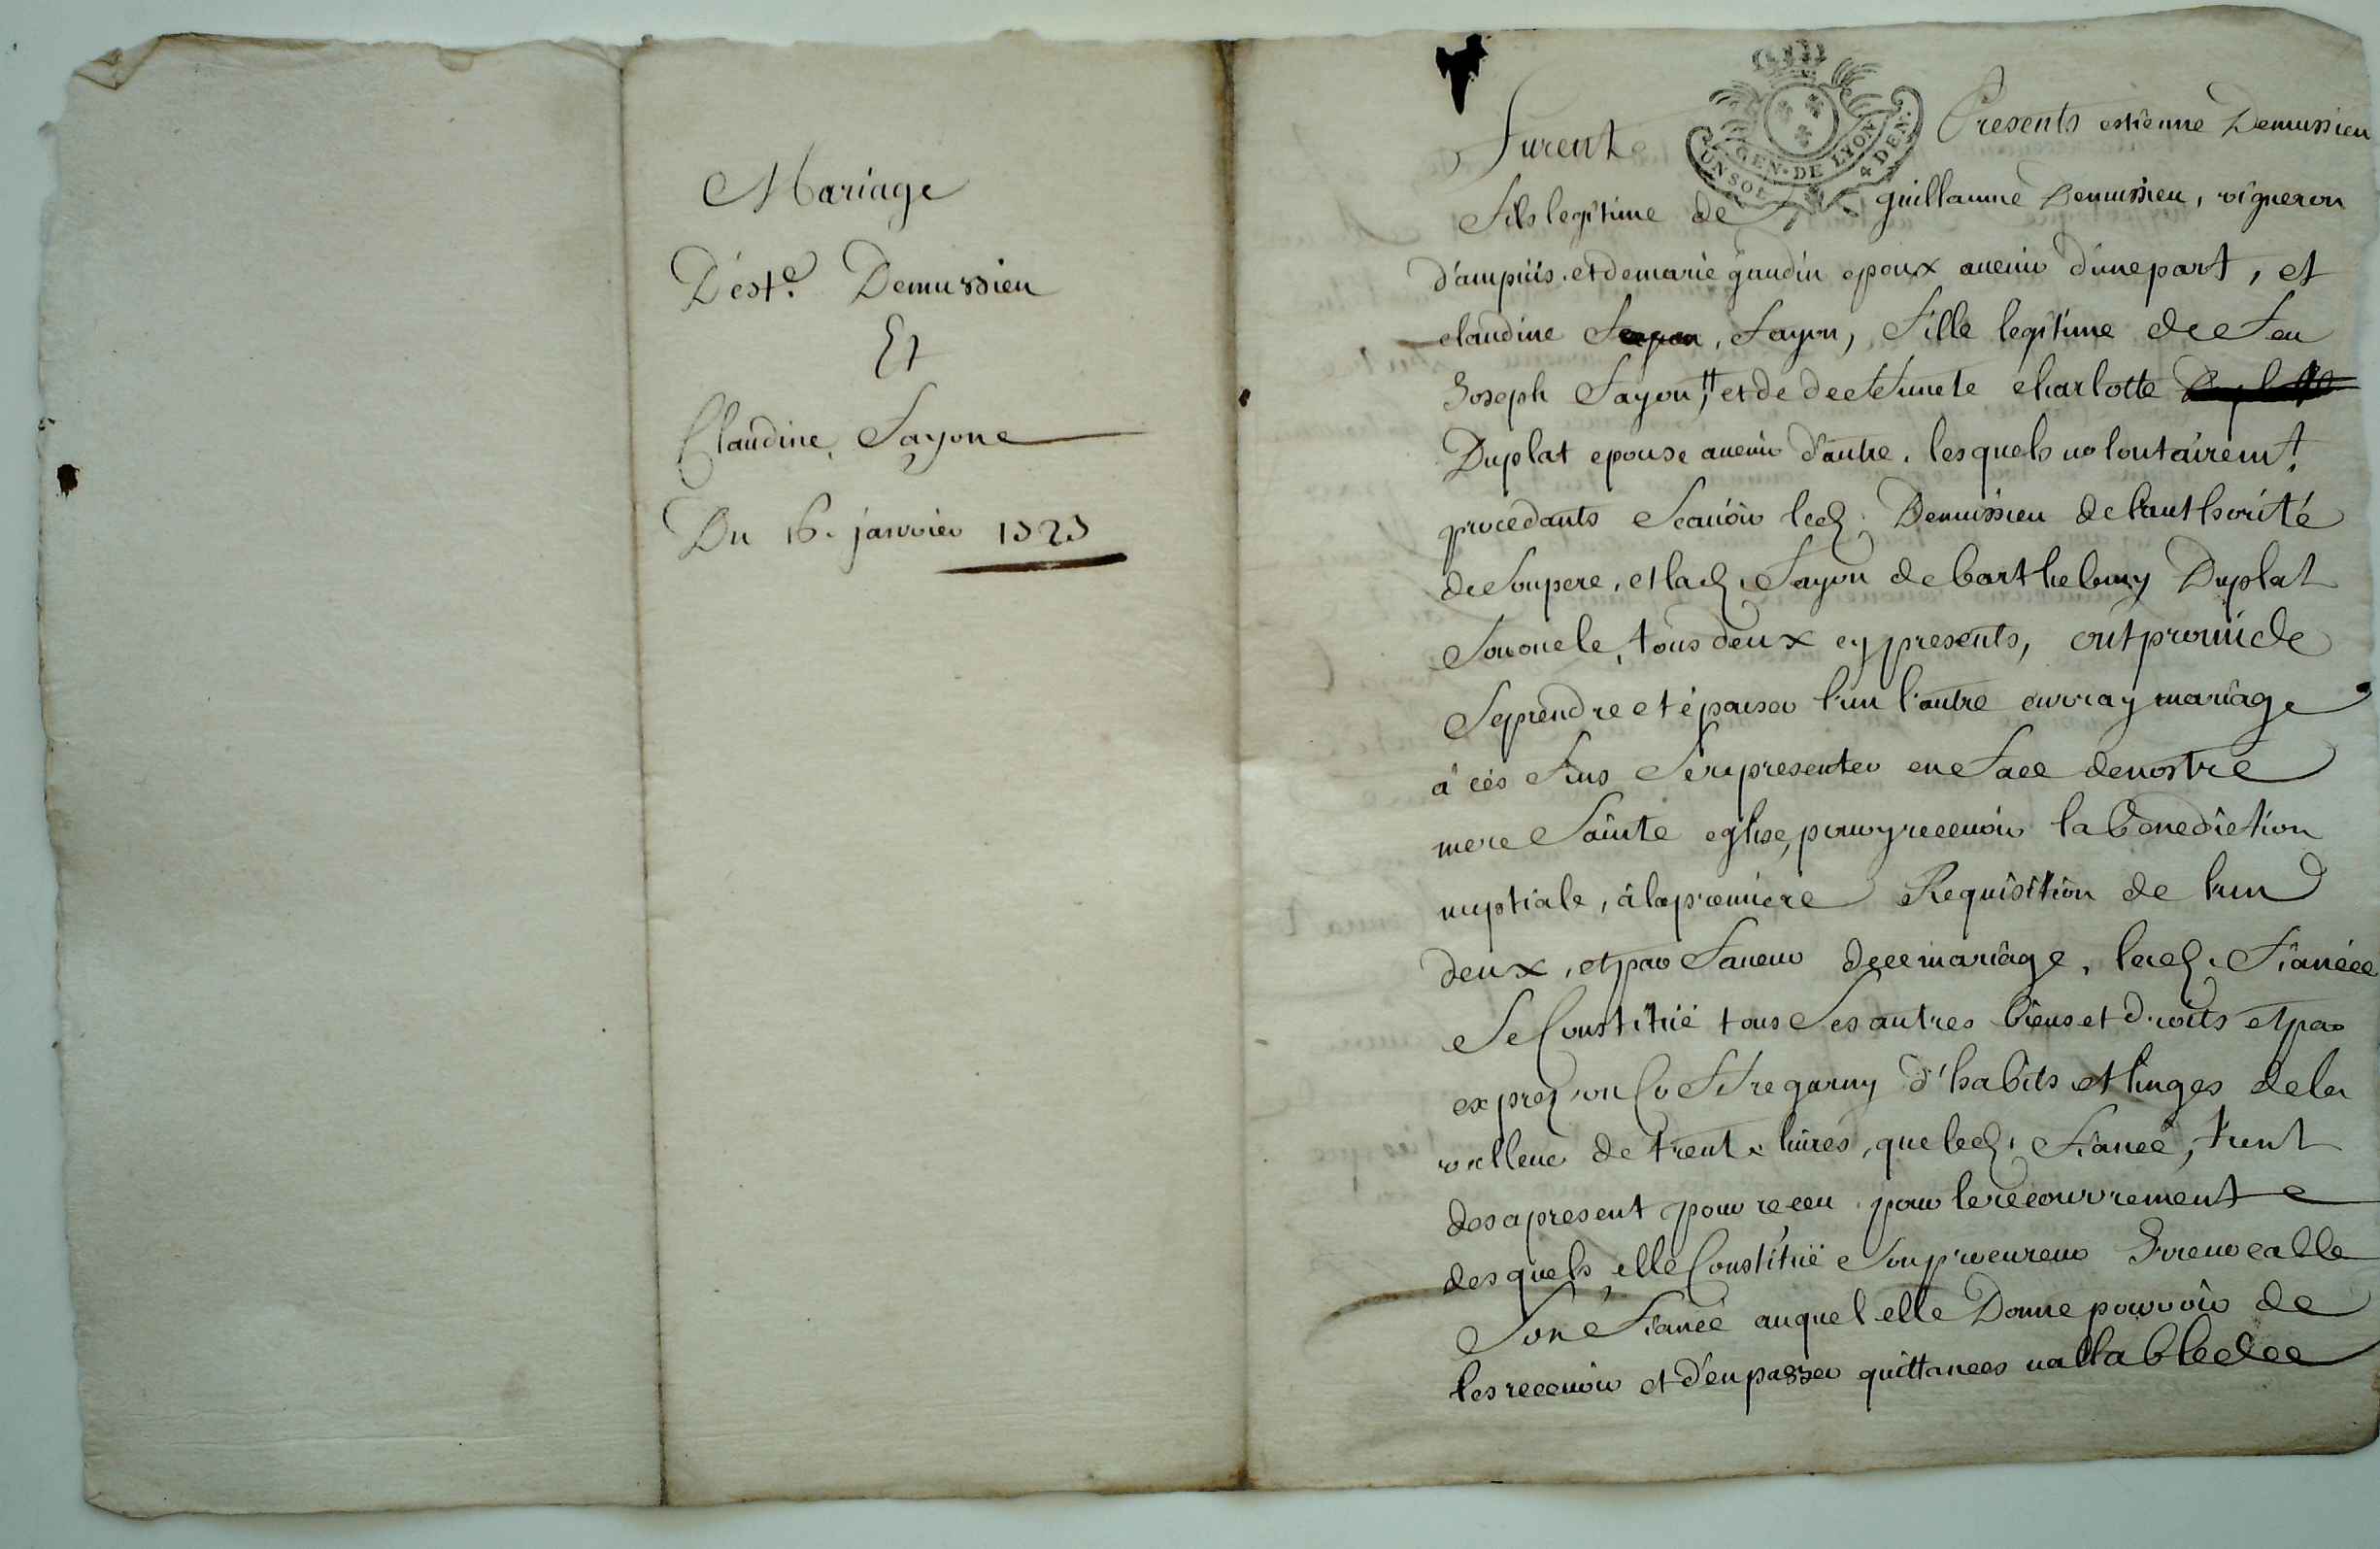 Mariage
D'est.e Demussieu
Et
Claudine Fayon
Du 16. janvier 1723
Furent Presents estienne Demussieu
GEN. DE LYON
UN SOL 4 DEN.
fils legitime de guillaume Demussieu, vigneron
d'ampuis et de marie gaudin epoux avenir d'une part, et
claudine, fayon, fille legitime de feu
Joseph fayon, et de deffuncte charlotte
Duplat epouse auenir d'autre. lesquels uolontairem.t
procedants scauoir led. Demussieu de l'authorité
de son pere, et lad. fayon de barthelemy Duplat
son oncle, tous deux cy presents, ont promis de
se prendre et épouser l'un l'autre en vray mariage
à ces fins se representer en face de nostre
mere sainte eglise, pour y recevoir la benediction
nuptiale, à la premiere Requisition de l'un
deux, et par faueur de ce mariage, lad. fiancée
se Constitue tous ses autres biens et droits et par
exprez un Coffre garny d'habits et linges de la
valleur de trente liures, que led. fiancé, tient
des a present pour receu pour le recouvrement
desquels elle Constitue son procureur Irreuocable
son fiancé auquel elle Donne pouvoir de
les recevoir et d'en passer quittances uallable de ce